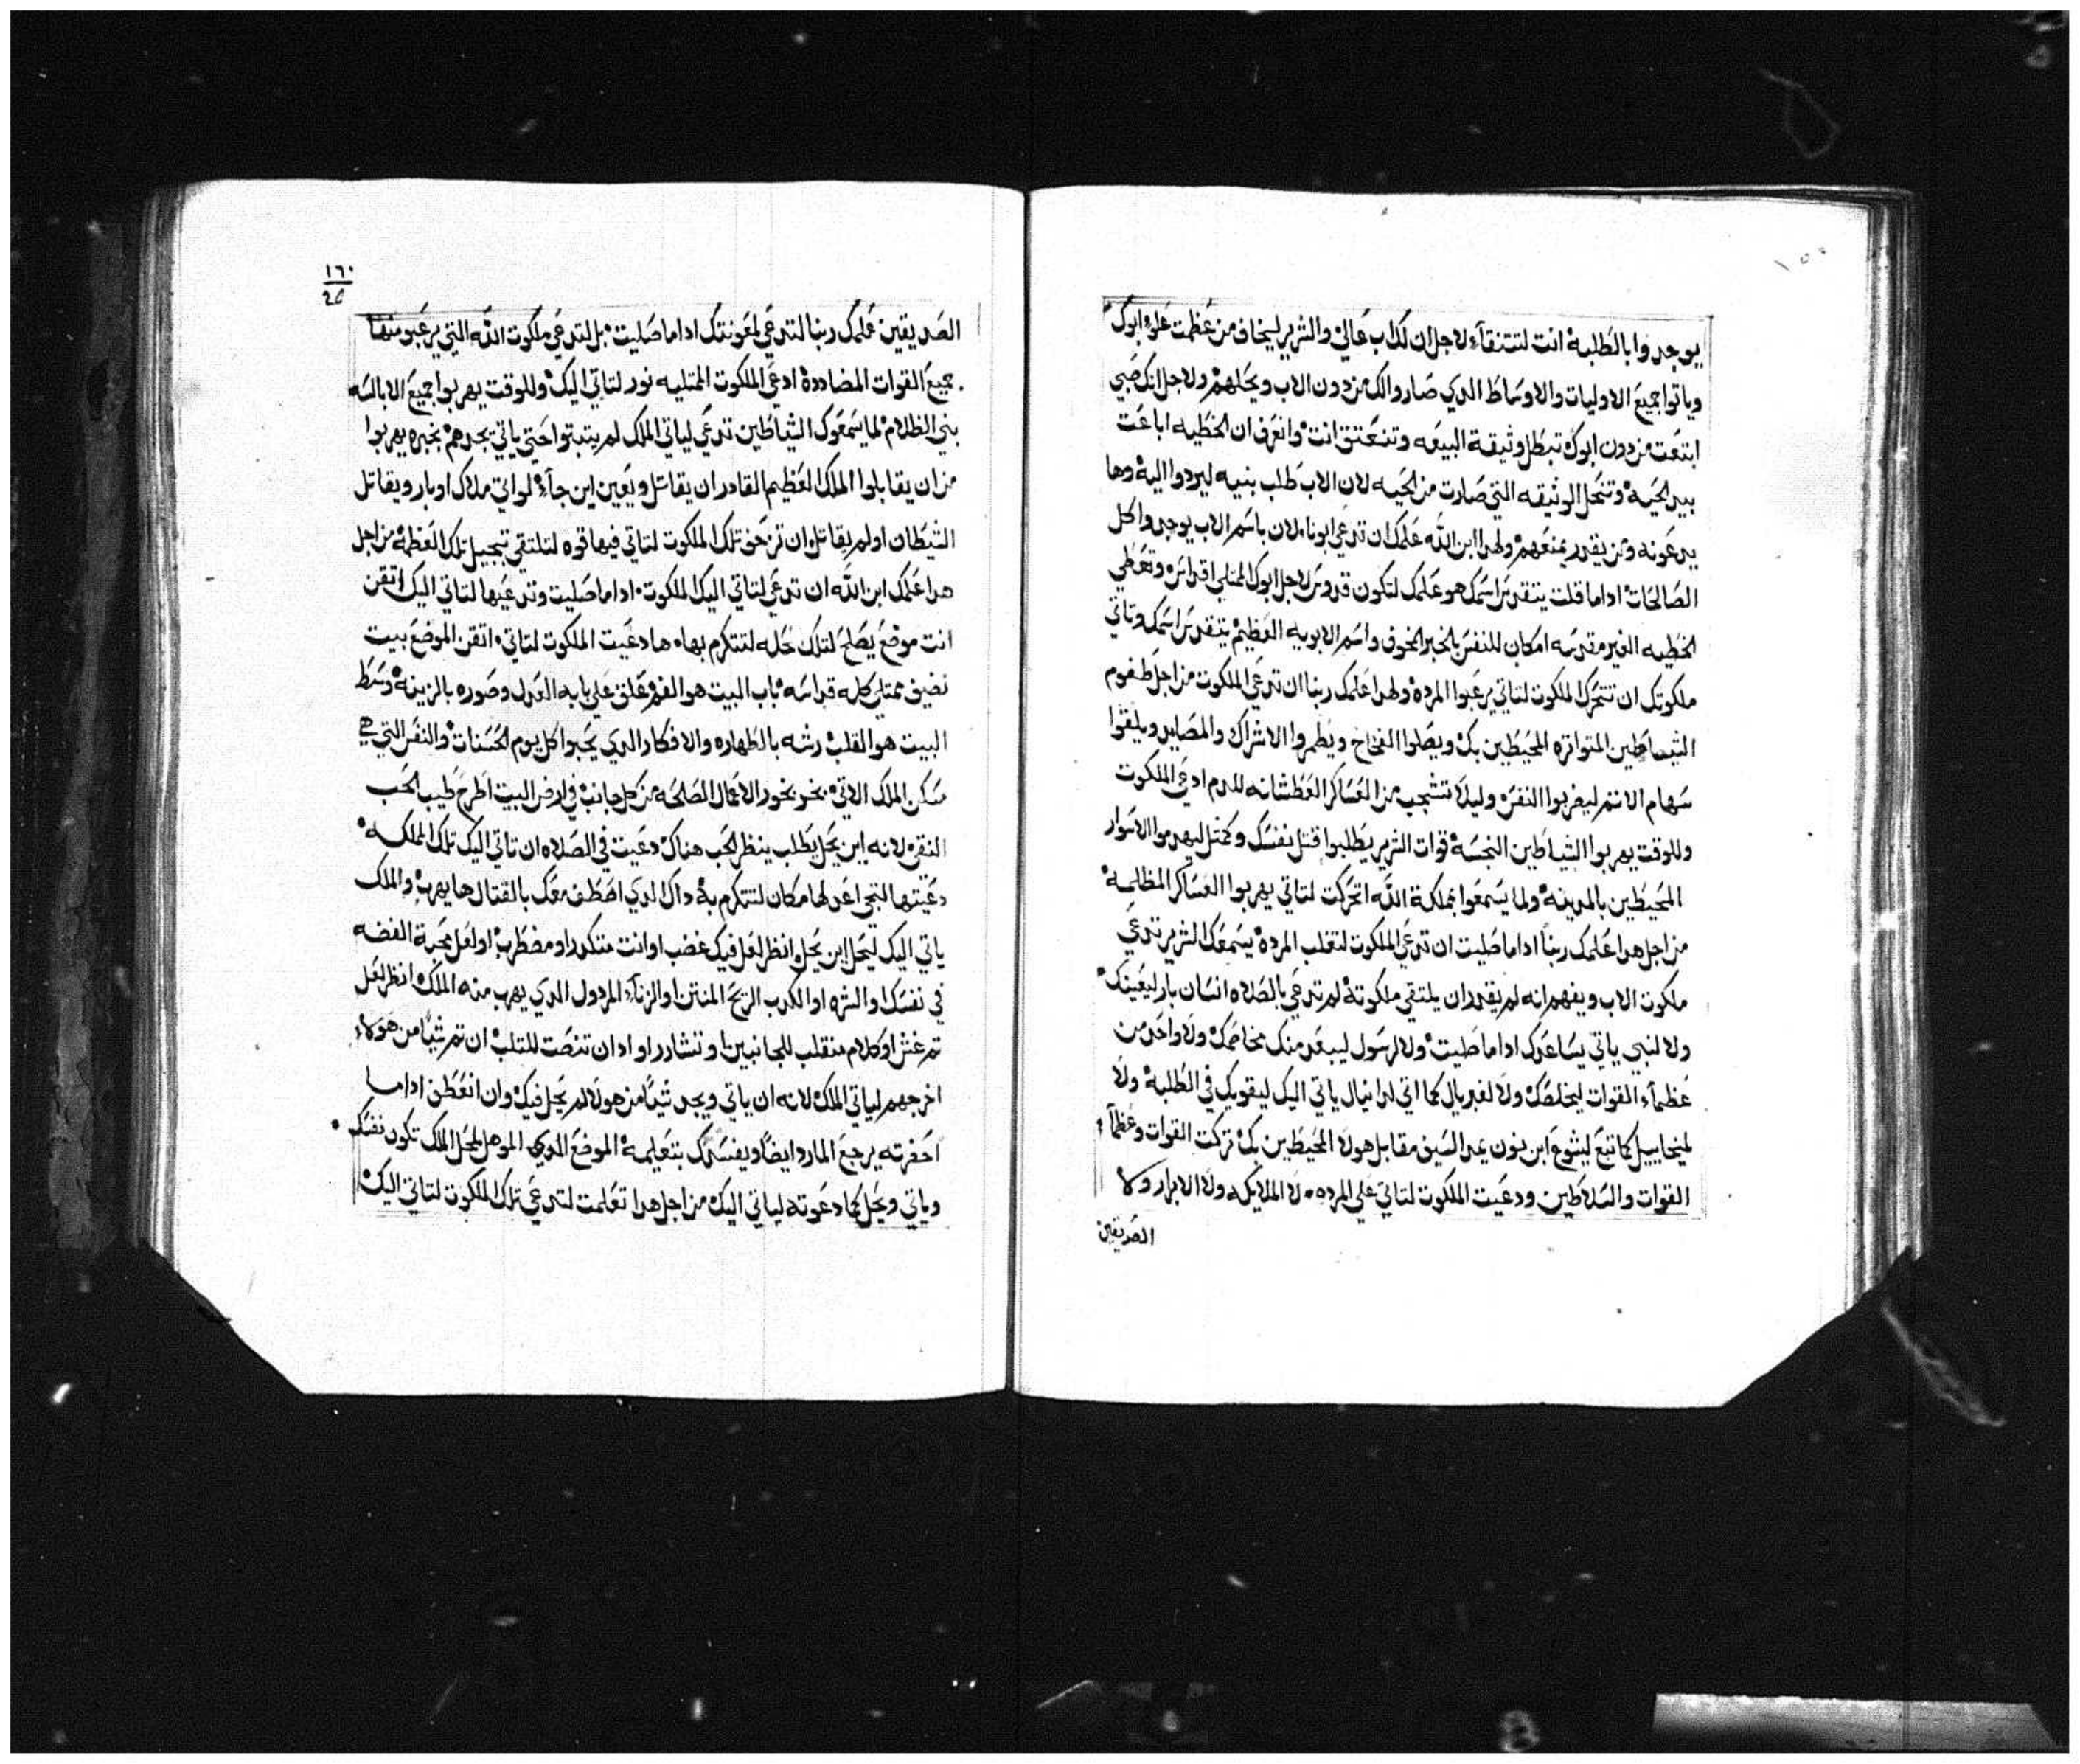 يوجدوا بالطلبة انت لتتنقآء لاجل ان لك اب عالي والشرير ليخاف من عظمت علو ابوك
وياتوا جميع الاوليات والاوساط الدي صاروا لك من دون الاب ويحلهم ولاجل انك صبي
ابتعت من دون ابوك تبطل وثيقة البيعه وتنعتق انت وانعرف ان الخطيه اباعت
بيد الحيه وتنحل الوثيقه التي صارت من الحيه لان الاب طلب بنيه ليردوا اليه وها
يدعونه ومن يقدر يمنعهم ولهدا ابن الله علمك ان تدعي ابونا لان باسم الاب يوجدوا كل
الصالحات اداما قلت يتقدس اسمك هو علمك لتكون قدوس لاجل ابوك الممتلي اقداس وتعطي
الخطيه الغير مقدسه امكان للنفس بالخبر الخوف واسم الابويه العظيم يتقدس اسمك وتاتي
ملكوتك ان تتحرك الملكوت لتاتي يرعبوا المرده ولهدا علمك ربنا ان تدعي الملكوت من اجل طغوم
الشياطين المتواتره المحيطين بك ويصلوا الفخاخ ويطمروا الاشراك والمصايد ويلقوا
سهام الاتم ليضربوا النفس وليلا تنشجب من العساكر العطشانه للدم ادعي الملكوت
وللوقت يهربوا الشياطين النجسه قوات الشرير يطلبوا قتل نفسك وكمثل ليهدموا الاسوار
المحيطين بالمدينه ولما يسمعوا بمملكة الله اتحركت لتاتي يهربوا العساكر المظلمه
من اجل هدا علمك ربنا اداما صليت ان تدعي الملكوت لتغلب المرده يسمعك الشرير تدعي
ملكوت الاب ويفهم انه لم يقدر ان يلتقي ملكوته لم تدعي بالصلاه انسان بار ليعينك
ولا لنبي ياتي يساعدك اداما صليت ولا لرسول ليبعد منك مخاصمك ولا واحد من
عظمآء القوات ليخلصك ولا لغبريال كما اتي لدانيال ياتي اليك ليقويك في الطلبة ولا
لميخاييل كما تبع ليشوع ابن نون يمد السيف مقابل هولا المحيطين بك تركت القوات وعظمآء
القوات والسلاطين ودعيت الملكوت لتاتي علي المرده لا الملايكه ولا الابرار ولا
الصديقين
١٦٠
الصديقين علمك ربنا لتدعي لمعونتك اداما صليت بل لتدعي ملكوت الله التي يرعبو منها
جميع القوات المضادده ادعي الملكوت الممتليه نور لتاتي اليك وللوقت يهربوا جميع الابالسه
بني الظلام لما يسمعوك الشياطين تدعي لياتي الملك لم يتبتوا حتي ياتي يجدهم بخبره يهربوا
من ان يقابلوا الملك العظيم القادر ان يقاتل ويعين اين جآء لو اتي ملاك او بار ويقاتل
الشيطان او لم يقاتل ان تزحق تلك الملكوت لتاتي فيها قوه لتلتقي تبجيل تلك العظمه من اجل
هدا علمك ابن الله ان تدعي لتاتي اليك الملكوت اداما صليت وتدعيها لتاتي اليك اتقن
انت موضع يصلح لتلك تحله لتتكرم بها ها دعيت الملكوت لتاتي اتقن الموضع بيت
نضيف ممتلي كله قداسه باب البيت هو الفم علق علي بابه العدل وصوره بالزينه وسط
البيت هو القلب رشه بالطهاره والافكار الدي يجبوا كل يوم الحسنات والنفس التي هي
مسكن الملك الاتي بخر بخور الاعمال الصالحه من كل جانب في ارض البيت اطرح طيب الحب
النقي لانه اين يحل يطلب ينظر الحب هناك دعيت في الصلاه ان تاتي اليك تلك المملكه
دعيتها لتجي اعد لها مكان لتتكرم به داك الدي اصطف معك بالقتال ها يهرب والملك
ياتي اليك ليحل اين يحل انظر لعل فيك غضب او انت متكدر او مضطرب او لعل محبة الفضه
في نفسك او الشره او الكدب الريح المنتن او الزنآء المردول الدي يهرب منه الملك انظر لعل
تم غش او كلام منقلب للجانبين او تتشادد او ادان تنصت للتلب ان تم شيا من هولاء
اخرجهم لياتي الملك لانه ان ياتي ويجد شيا من هولا لم يحل فيك وان انعطف اداما
احضرته يرجع المارد ايضا ويفسدك بتعليمه الموضع الدي الموهل لمحل الملك تكون نفسك
وياتي ويحل كما دعوته لياتي اليك من اجل هدا تعلمت لتدعي تلك الملكوت لتاتي اليك